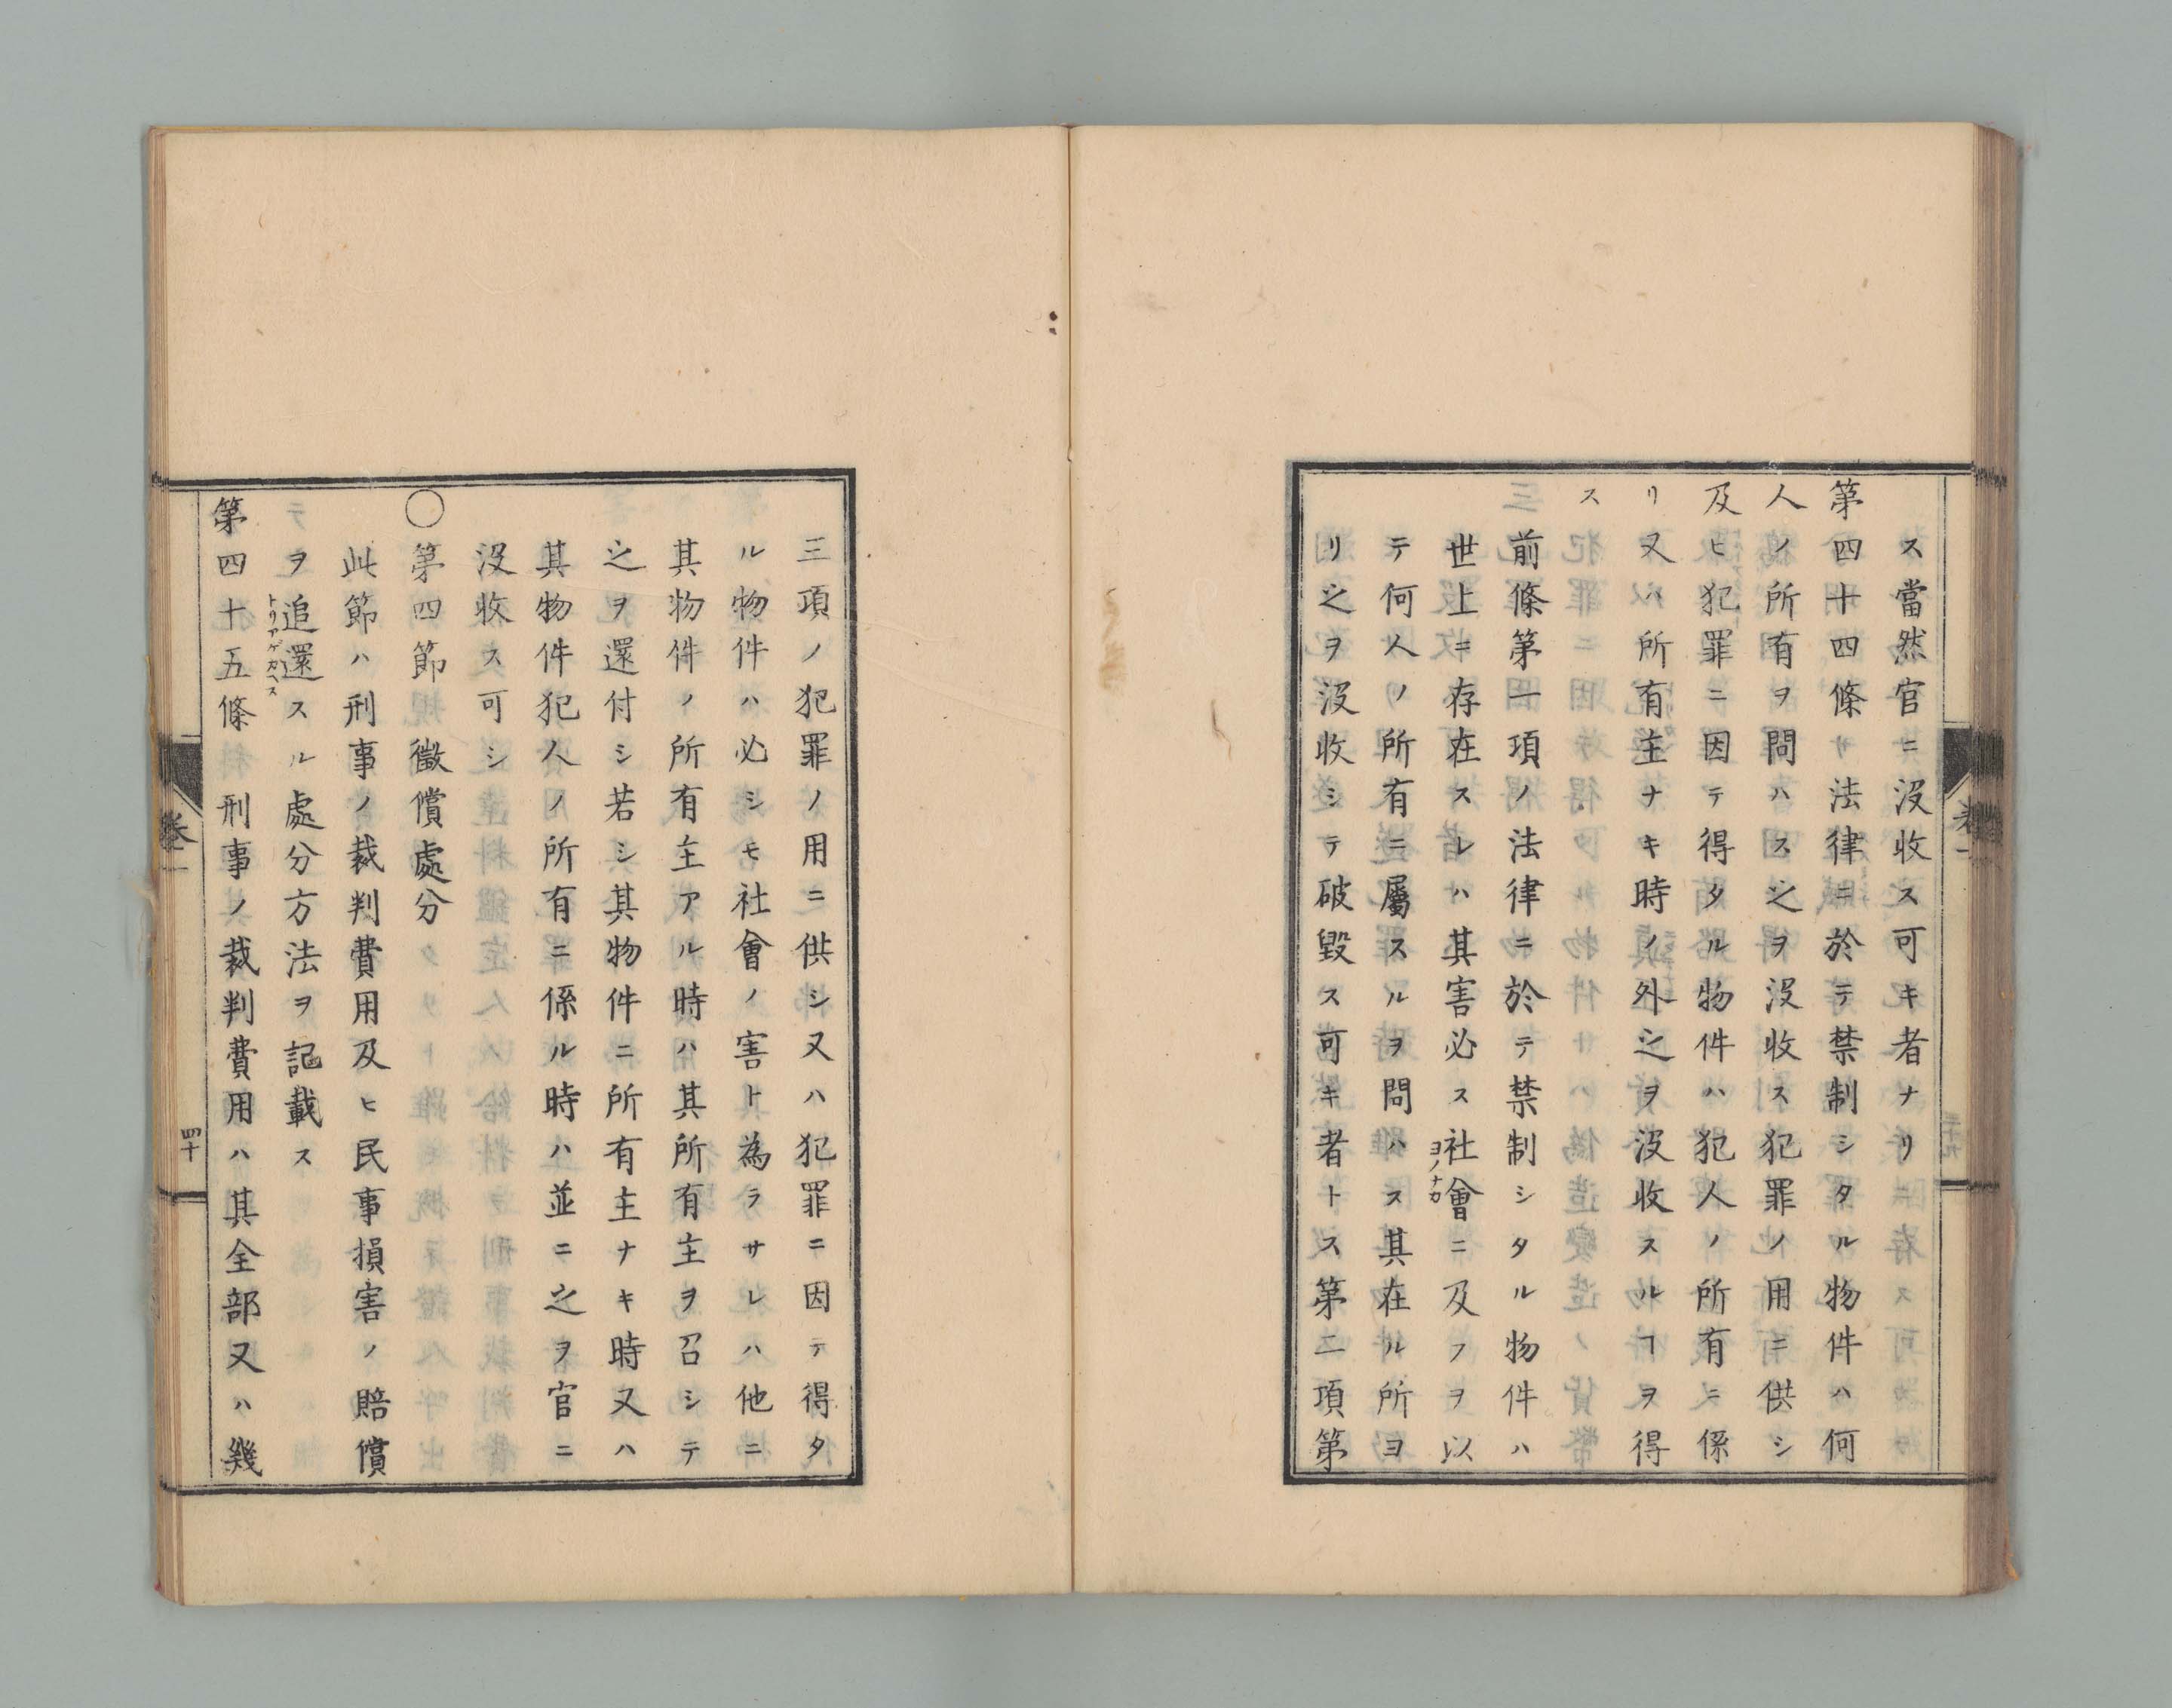 ス當然官ニ沒收ス可キ者ナリ
第四十四條法律ニ於テ禁制シタル物件ハ何
人ノ所有ヲ問ハス之ヲ沒收ス犯罪ノ用ニ供シ
及ヒ犯罪ニ因テ得タル物件ハ犯人ノ所有ニ係
リ又ハ所有主ナキ時ノ外之ヲ沒收スルヿヲ得
ス
前條第一項ノ法律ニ於テ禁制シタル物件ハ
世上ニ存在スレハ其害必ス社會ニ及フヲ以
ヨノナカ
テ何人ノ所有ニ屬スルヲ問ハス其在ル所ヨ
リ之ヲ沒收シテ破毀ス可キ者トス第二項第
三項ノ犯罪ノ用ニ供シ又ハ犯罪ニ因テ得タ
ル物件ハ必シモ社會ノ害ト為ラサレハ他ニ
其物件ノ所有主アル時ハ其所有主ヲ召シテ
之ヲ還付シ若シ其物件ニ所有主ナキ時又ハ
其物件犯人ノ所有ニ係ル時ハ並ニ之ヲ官ニ
沒收ス可シ
○第四節徵償處分
此節ハ刑事ノ裁判費用及ヒ民事損害ノ賠償
ヲ追還スル處分方法ヲ記載ス
トリアゲカヘス
第四十五條刑事ノ裁判費用ハ其全部又ハ幾
卷一
四十